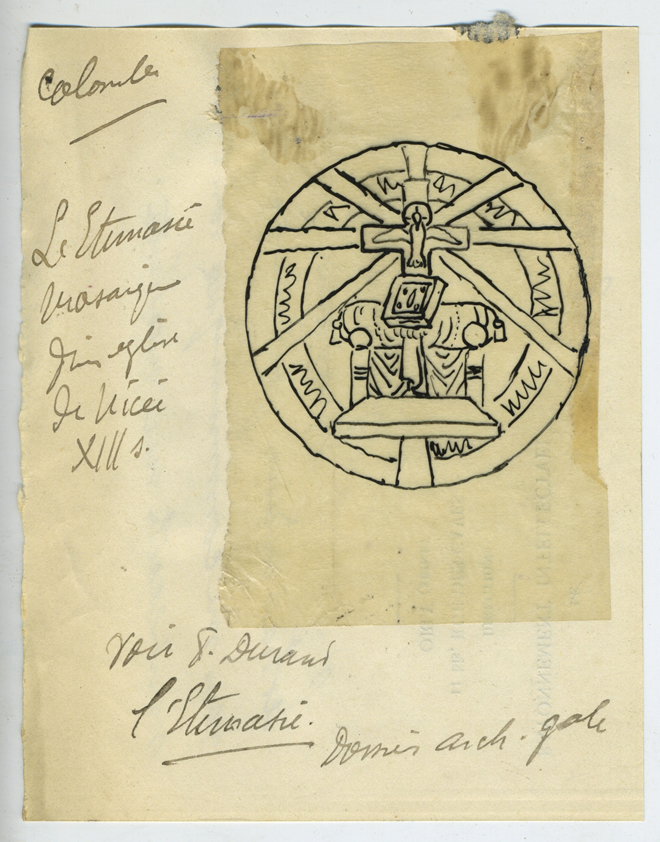 Colombe
Le Etimasie
Mosaique
d'une eglise
de Nicée
XIII s.
voir P. Durand
l'Etimasie.
Dossier arch. gale